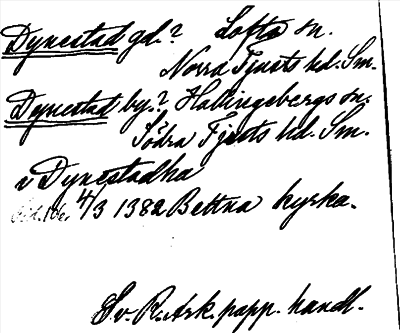 Dynestad gd.? Lofta sn.
Norra Tjusts hd. Sm.
Dynestad by.? Hallingebergs sn.
Södra Tjusts hd. Sm.
v Dynestadha
4/3 1382 Bettna kyrka.
Sv. R. Ark. papp. handl.